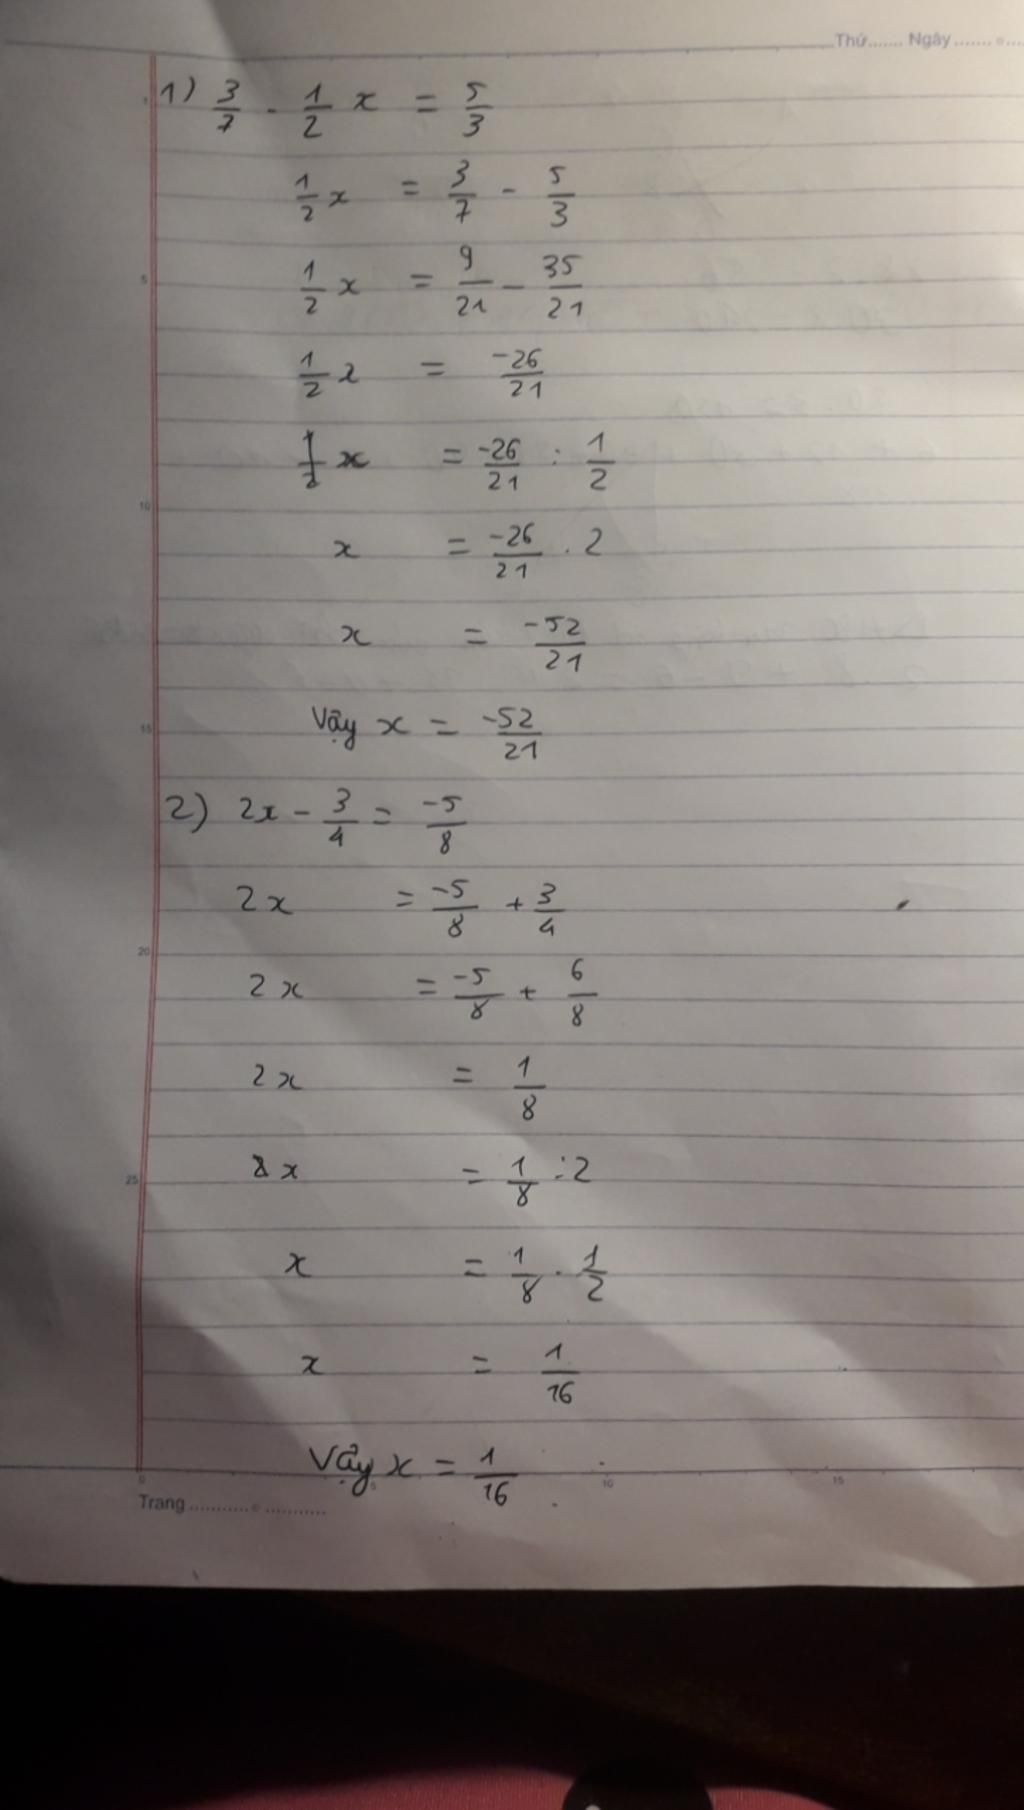 Thứ....... Ngày....... ....
1) 3/7 - 1/2 x = 5/3
1/2 x = 3/7 - 5/3
1/2 x = 9/21 - 35/21
1/2 x = -26/21
1/2 x = -26/21 : 1/2
x = -26/21 . 2
x = -52/21
Vậy x = -52/21
2) 2x - 3/4 = -5/8
2x = -5/8 + 3/4
2x = -5/8 + 6/8
2x = 1/8
x = 1/8 : 2
x = 1/8 . 1/2
x = 1/16
Vậy x = 1/16.
Trang ......................